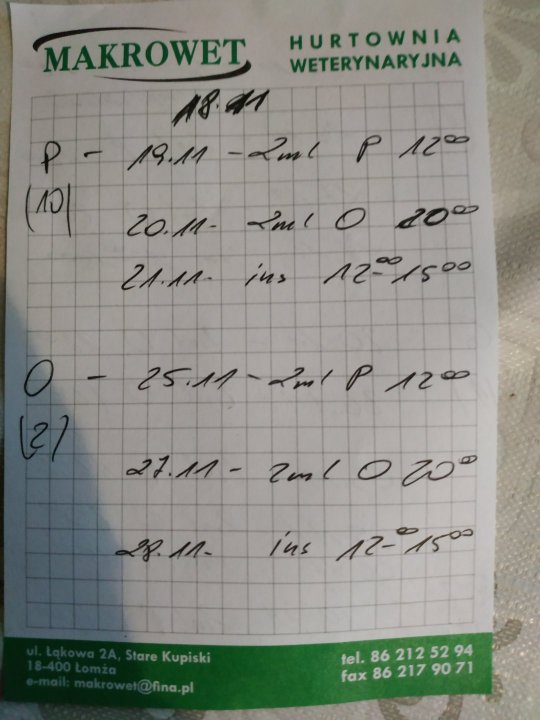 MAKROWET
HURTOWNIA
WETERYNARYJNA
18.11
P - 19.11 - 2ml P 12⁰⁰
(10)
20.11- 2ml O 20⁰⁰
21.11- ins 12⁰⁰-15⁰⁰
O - 25.11 - 2ml P 12⁰⁰
(2)
27.11 - 2ml O 20⁰⁰
28.11- ins 12⁰⁰-15⁰⁰
ul. Łąkowa 2A, Stare Kupiski
18-400 Łomża
e-mail: makrowet@fina.pl
tel. 86 212 52 94
fax 86 217 90 71